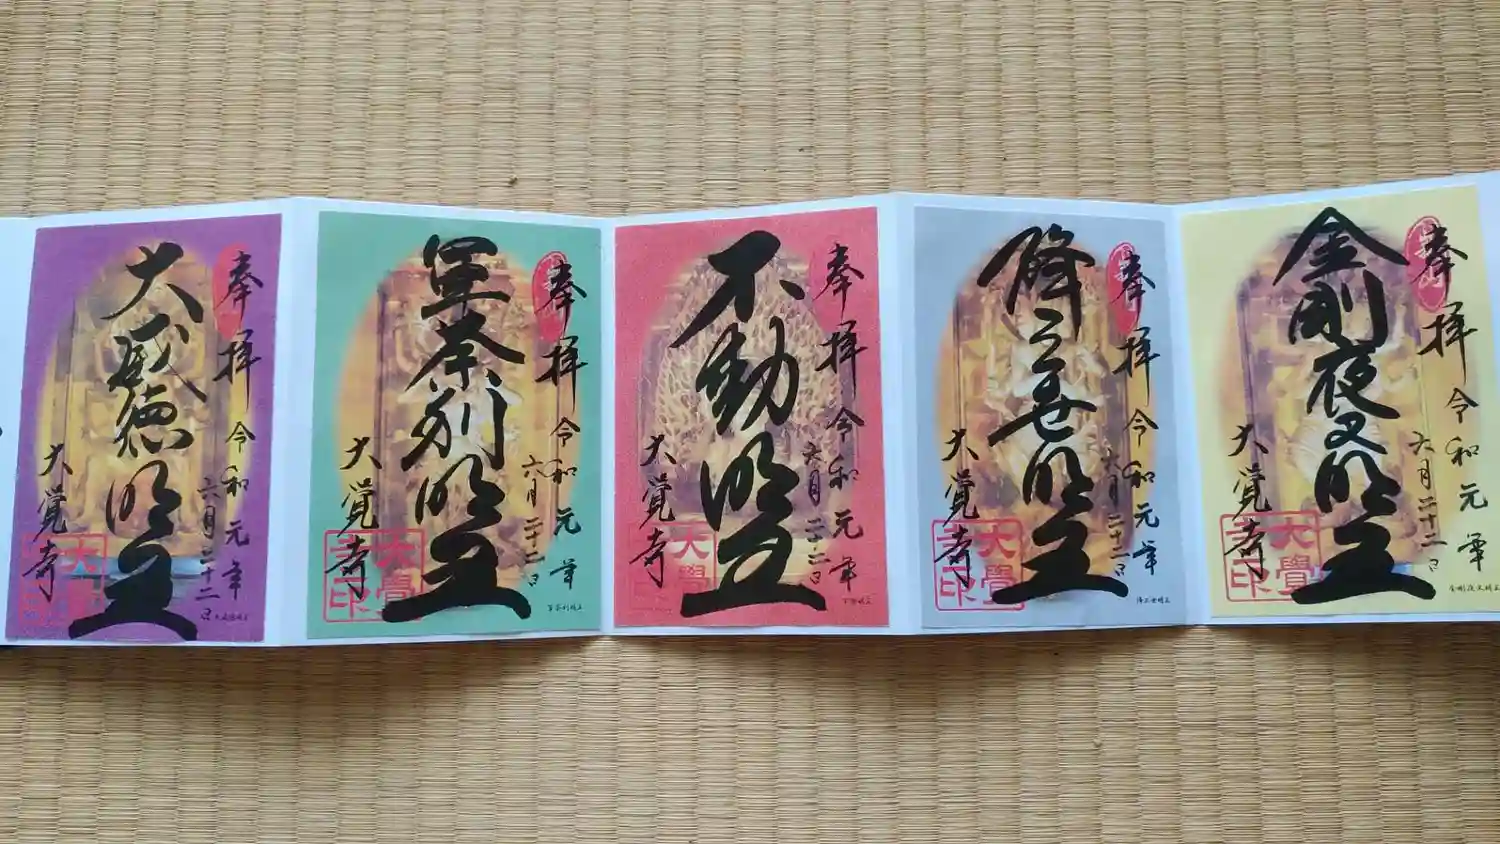 奉拝
令和元年
六月二十二日
大威徳明王
大覚寺
大覺寺印
大威徳明王
奉拝
令和元年
六月二十二日
軍荼利明王
大覚寺
大覺寺印
軍荼利明王
奉拝
令和元年
六月二十二日
不動明王
大覚寺
大覺寺印
不動明王
奉拝
令和元年
六月二十二日
降三世明王
大覚寺
大覺寺印
降三世明王
奉拝
令和元年
六月二十二日
金剛夜叉明王
大覚寺
大覺寺印
金剛夜叉明王